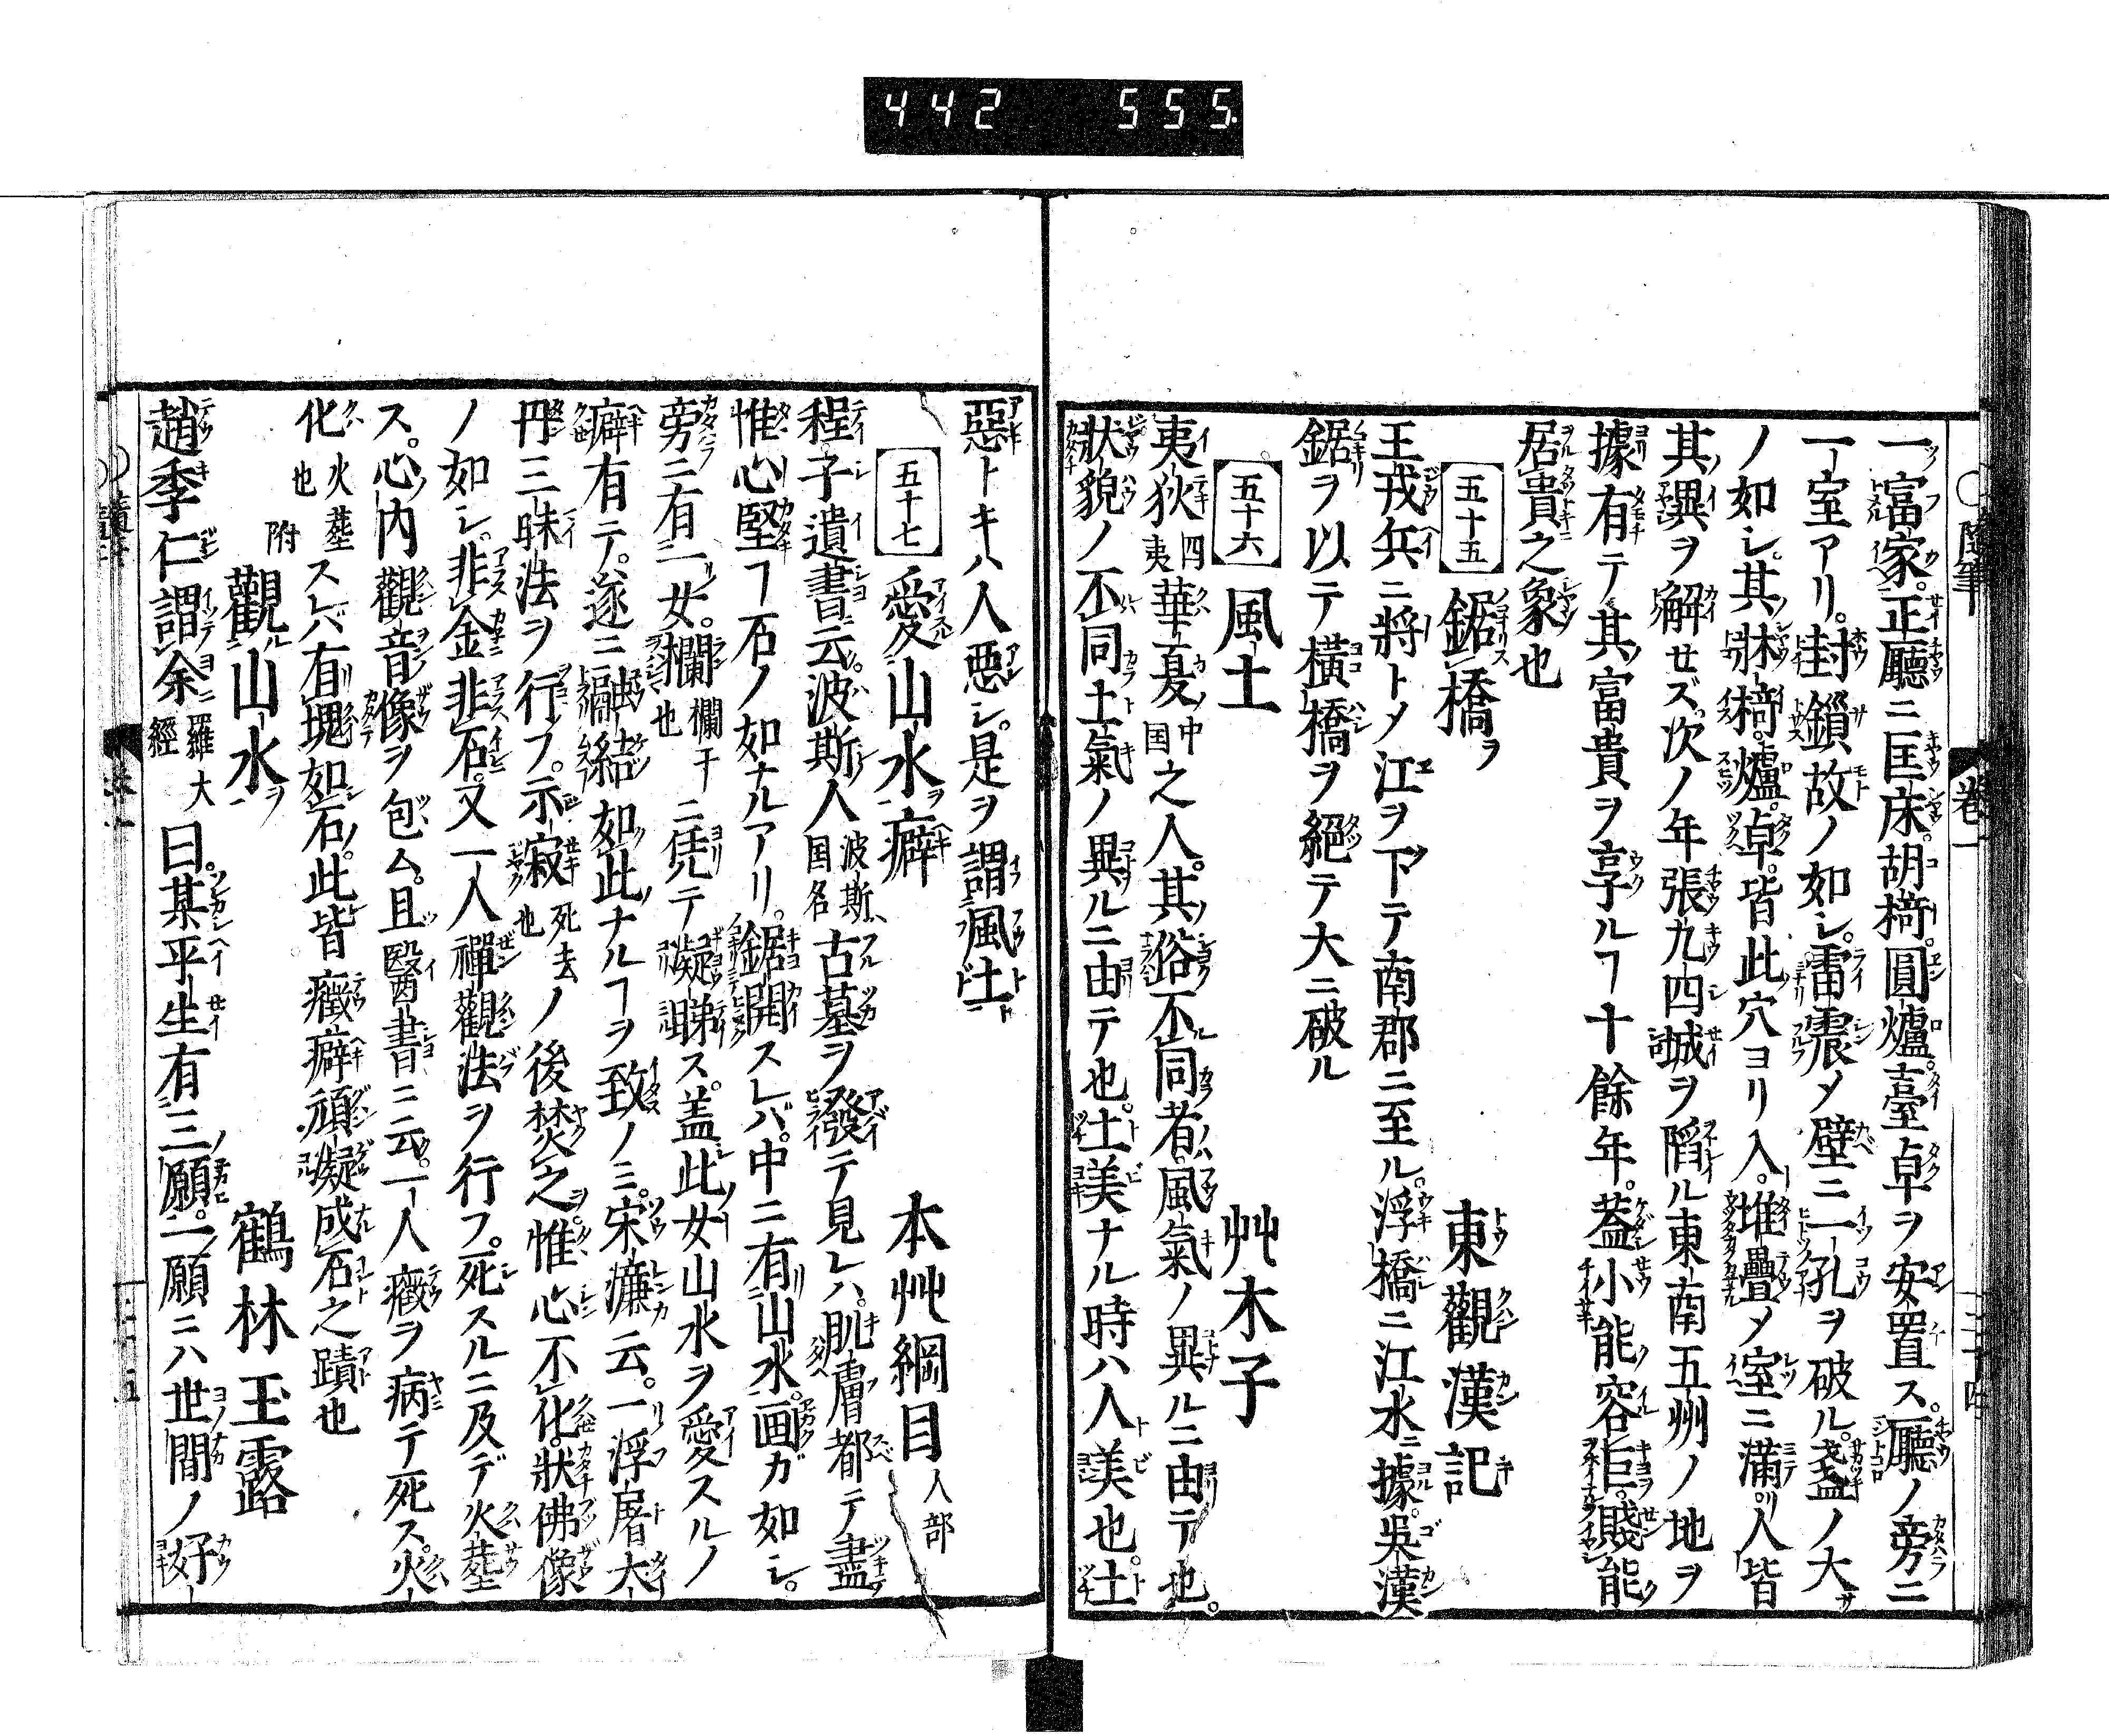 442 555.
一富家。正廳ニ匡床。胡椅。圓爐。臺卓ヲ安置ス。廳ノ旁ニ
一室アリ。封鎖故ノ如シ。雷震〆壁ニ一孔ヲ破ル。盞ノ大サ
ノ如シ。其牀椅。爐。卓。皆此穴ヨリ入。堆疊〆室ニ滿リ。人皆
其異ヲ解セズ。次ノ年張九四城ヲ陷ル東南五州ノ地ヲ
據有テ其富貴ヲ享ルヿ十餘年。蓋小能容巨。賤能
居貴之象也
五十五 鋸橋ヲ 東觀漢記
王戎兵ニ將ト〆江ヲ下テ南郡ニ至ル。浮橋ニ江水ニ據。吳漢
鋸ヲ以テ橫橋ヲ絕テ大ニ破ル
五十六 風土 艸木子
夷狄四夷華夏中国之人。其俗不同者。風氣ノ異ルニ由テ也。
狀貌ノ不同土氣ノ異ルニ由テ也。土美ナル時ハ人美也。土
惡トキハ人惡シ。是ヲ謂風土ト
五十七 愛山水ヲ癖 本艸綱目人部
程子遺書云。波斯人波斯ハ国名古墓ヲ發テ見レハ。肌膚都テ盡
惟心堅ヿ石ノ如ナルアリ。鋸開スレバ。中ニ有山水。画ガ如シ。
旁ニ有一女。欄欄干也ニ凭テ凝睇ス。蓋此女山水ヲ愛スルノ
癖有テ。遂ニ融結如此ナルヿヲ致ノミ。宋濂云。一浮屠大
丹三昧法ヲ行フ。示寂死去也ノ後焚之。惟心不化。狀佛像
ノ如シ。非金非石。又一人禪觀法ヲ行フ。死スルニ及デ火葬
ス。心內觀音像ヲ包ム。且醫書ニ云。一人癥ヲ病テ死ス。火
化火葬也スレバ有塊如石。此皆癥癖頑凝成石之蹟也
附 觀山水ヲ 鶴林玉露
趙季仁謂余羅大經曰。某平生有三願。一願ニハ世間ノ好